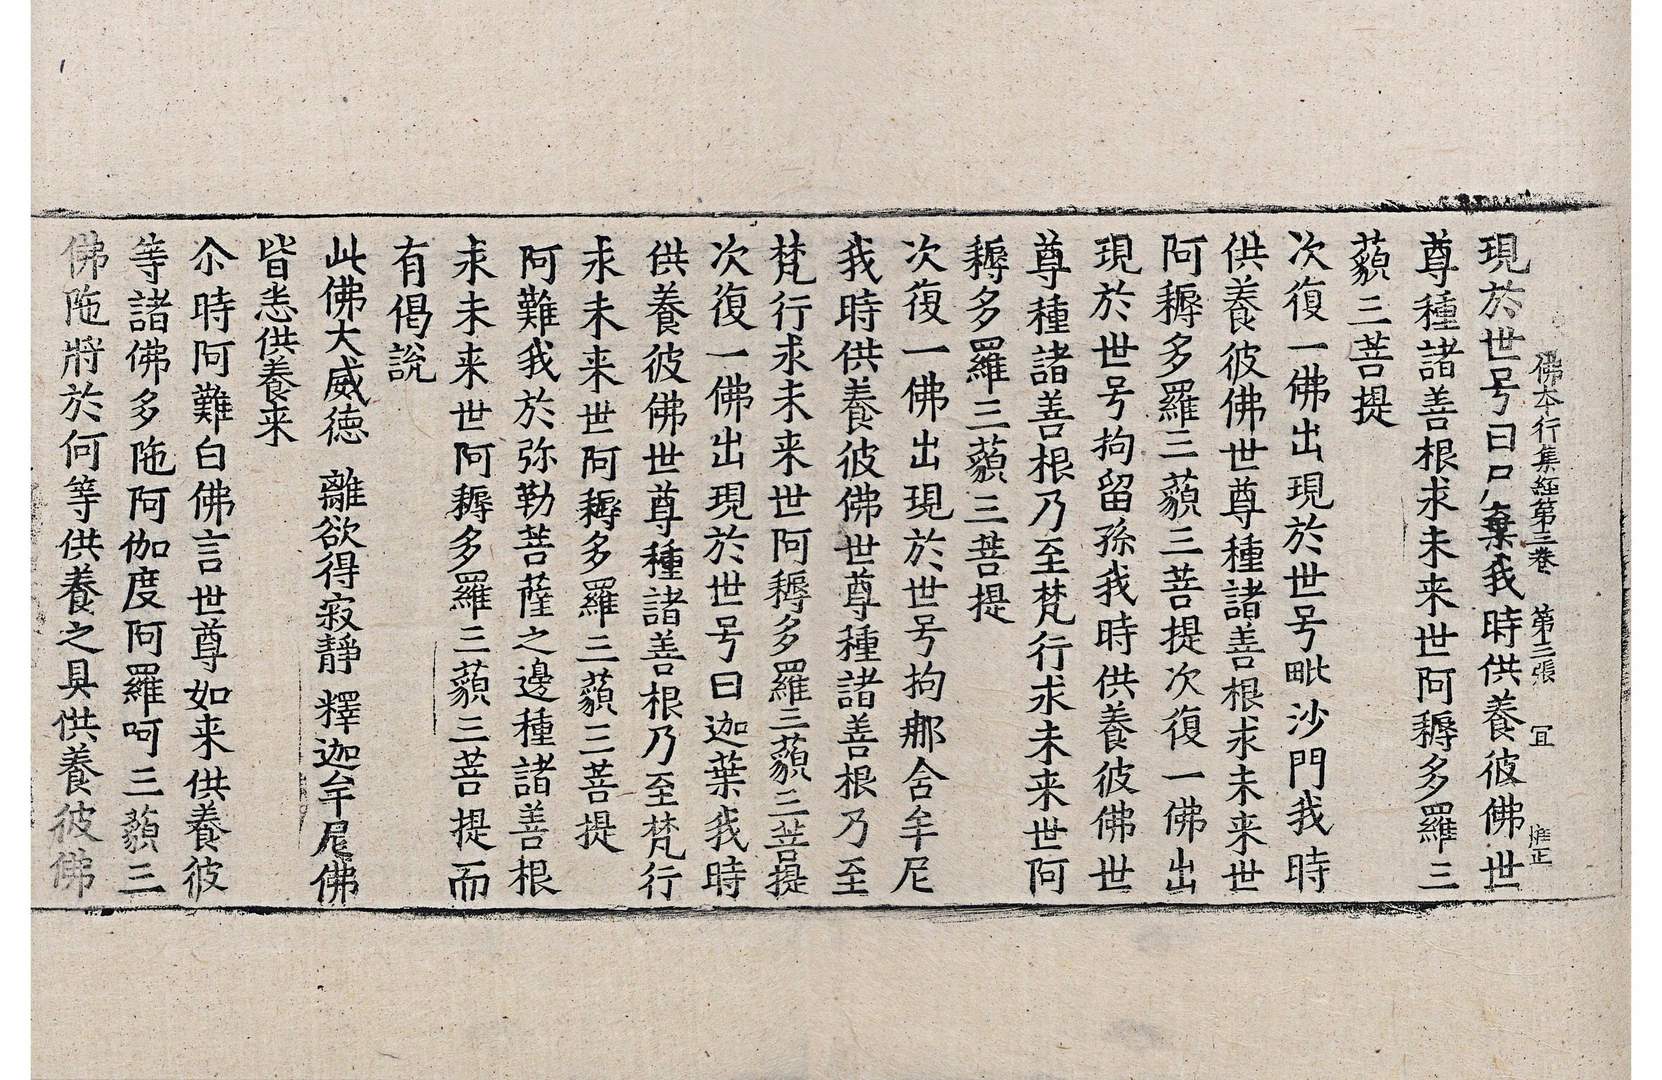 佛本行集經第三巻　第三張　冝　惟正
現於世号曰尸棄我時供養彼佛世
尊種諸善根求未来世阿耨多羅三
藐三菩提
次復一佛出現於世号毗沙門我時
供養彼佛世尊種諸善根求未来世
阿耨多羅三藐三菩提次復一佛出
現於世号拘留孫我時供養彼佛世
尊種諸善根乃至梵行求未来世阿
耨多羅三藐三菩提
次復一佛出現於世号拘那含牟尼
我時供養彼佛世尊種諸善根乃至
梵行求未来世阿耨多羅三藐三菩提
次復一佛出現於世号曰迦葉我時
供養彼佛世尊種諸善根乃至梵行
求未来世阿耨多羅三藐三菩提
阿難我於弥勒菩薩之邊種諸善根
求未来世阿耨多羅三藐三菩提而
有偈說
此佛大威德　離欲得寂靜　釋迦牟尼佛
皆悉供養来
尒時阿難白佛言世尊如来供養彼
等諸佛多陁阿伽度阿羅呵三藐三
佛陁將於何等供養之具供養彼佛